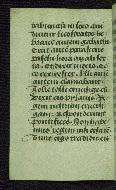 tribunali in loco qui
dicitur licostratos he
braice autem gabatha
Erat autem parasceue
pasche hora quasi sex
ta et dicit iudeis ec
ce rex vester Illi
autem clamabant
Tolle tolle crucifige eu
Dixit eis pylatus Re
gem vestrum crucifi
gam Responderunt
pontifices Non habe
mus regem nisi cesare
Tunc ergo tradidit eu